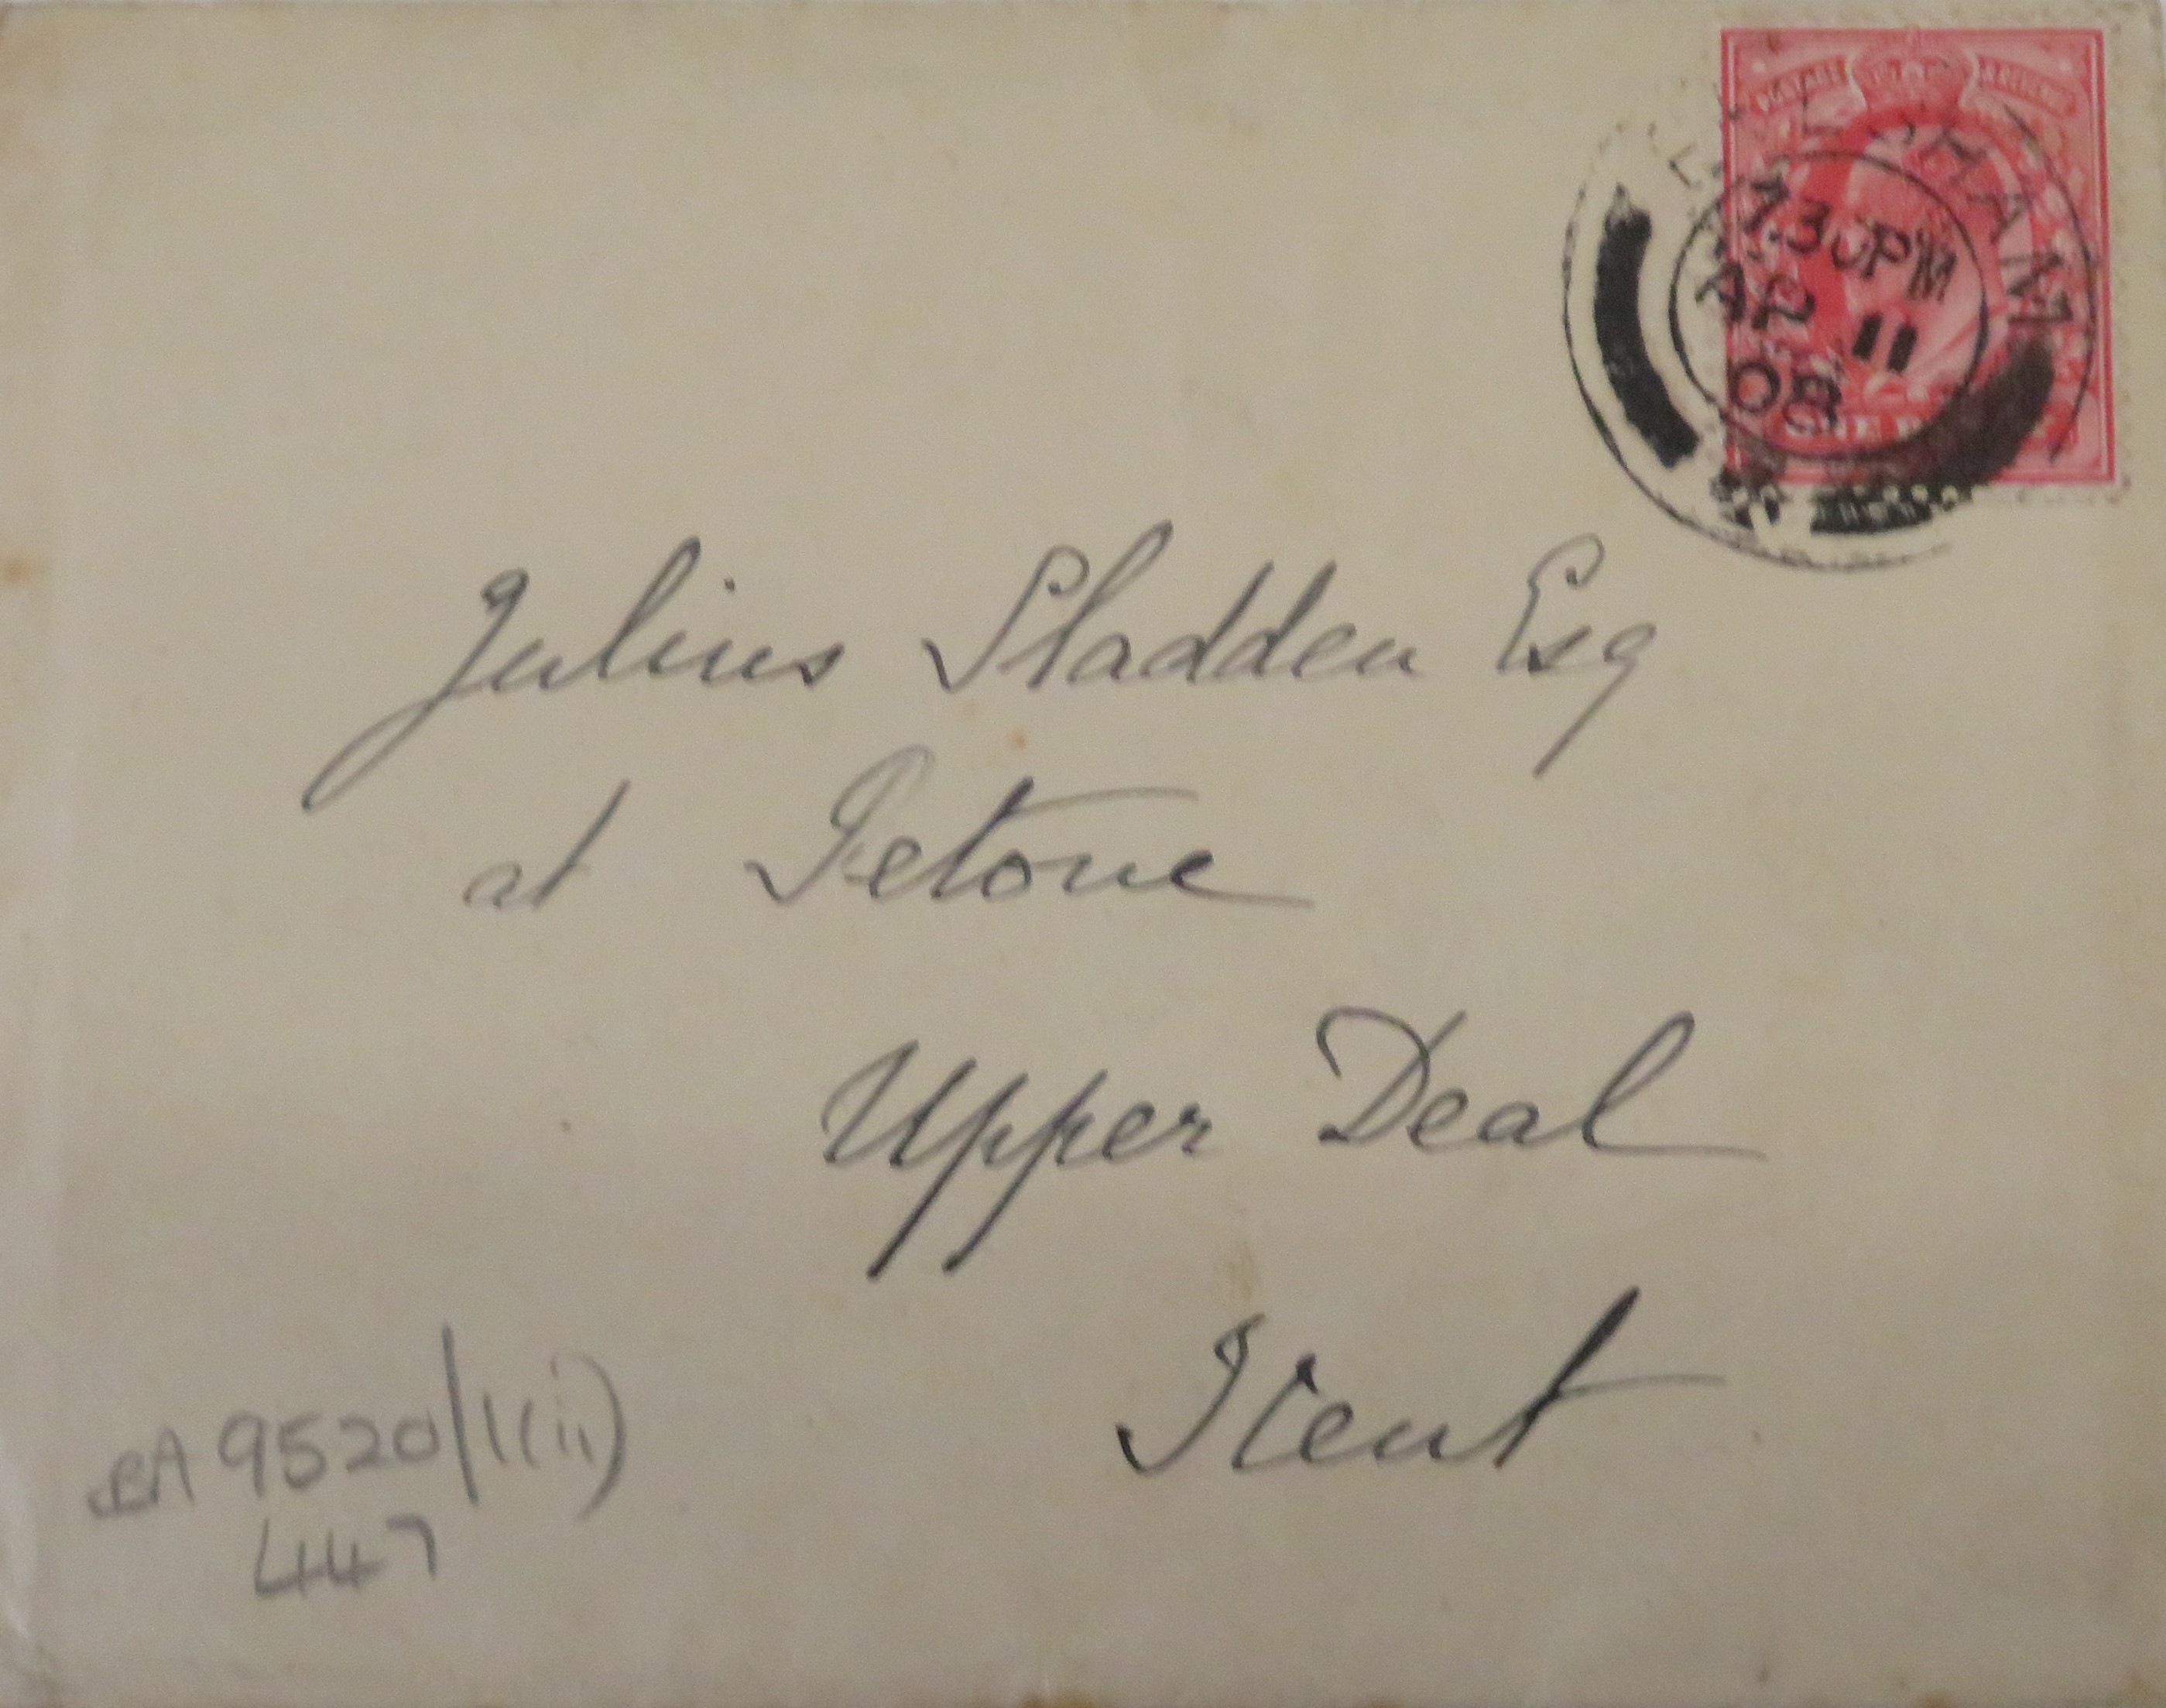 7.30PM
AP 11
08
Julius Sladden Esq
at Petone
Upper Deal
Kent
BA 9520/1(ii)
447